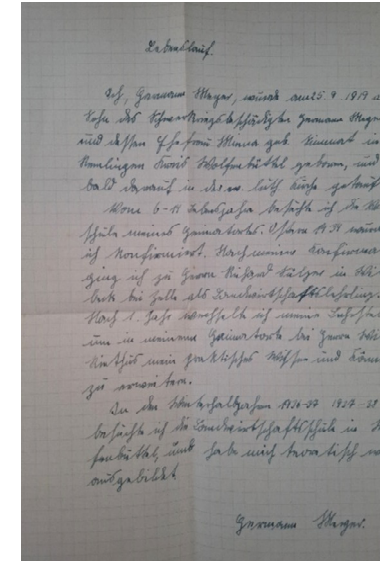 Lebenslauf.
Ich, Hermann Meyer, wurde am 25. 9. 1919 a
Sohn des Schwerkriegsbeschädigten Hermann Meyer
und dessen Ehefrau Minna geb. in
Remlingen Kreis Wolfenbüttel geboren, und
bald darauf in der ev. luth Kirche getauf
Vom 6-11 Lebensjahre besuchte ich die
schule meines Heimatortes. Ostern wurde
ich konfirmiert. Nach meiner Konfirma
ging ich zu Herrn Richard in
beck bei Zelle als Landwirtschaftslehrling.
Nach 1. Jahr wechselte ich meine Lehrstelle
um in meinem Heimatorte bei Herrn
mein praktisches Wissen und Könn
zu erweitern.
In den Winterhalbjahren 1936-37 1937-38
besuchte ich die Landwirtschaftsschule in
fenbüttel, und habe mich teoretisch
ausgebildet.
Hermann Meyer.